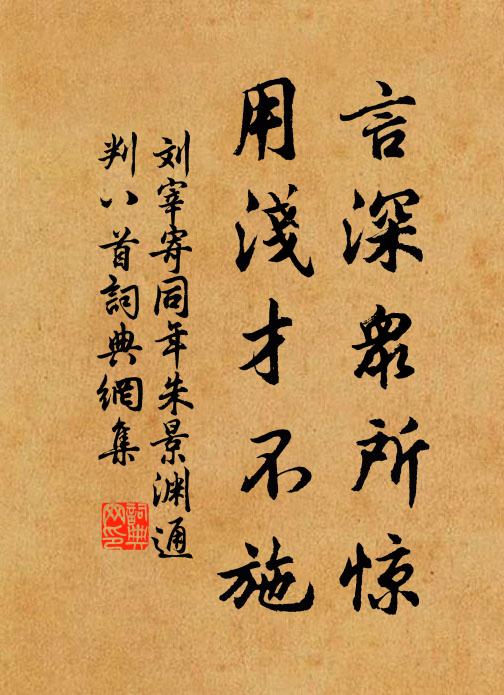 言深衆所惊
用淺才不施
刘宰寄同年朱景渊通
判八首詞典網集
詞典
网印